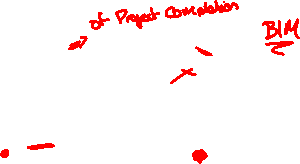 of Project Completion
BIM